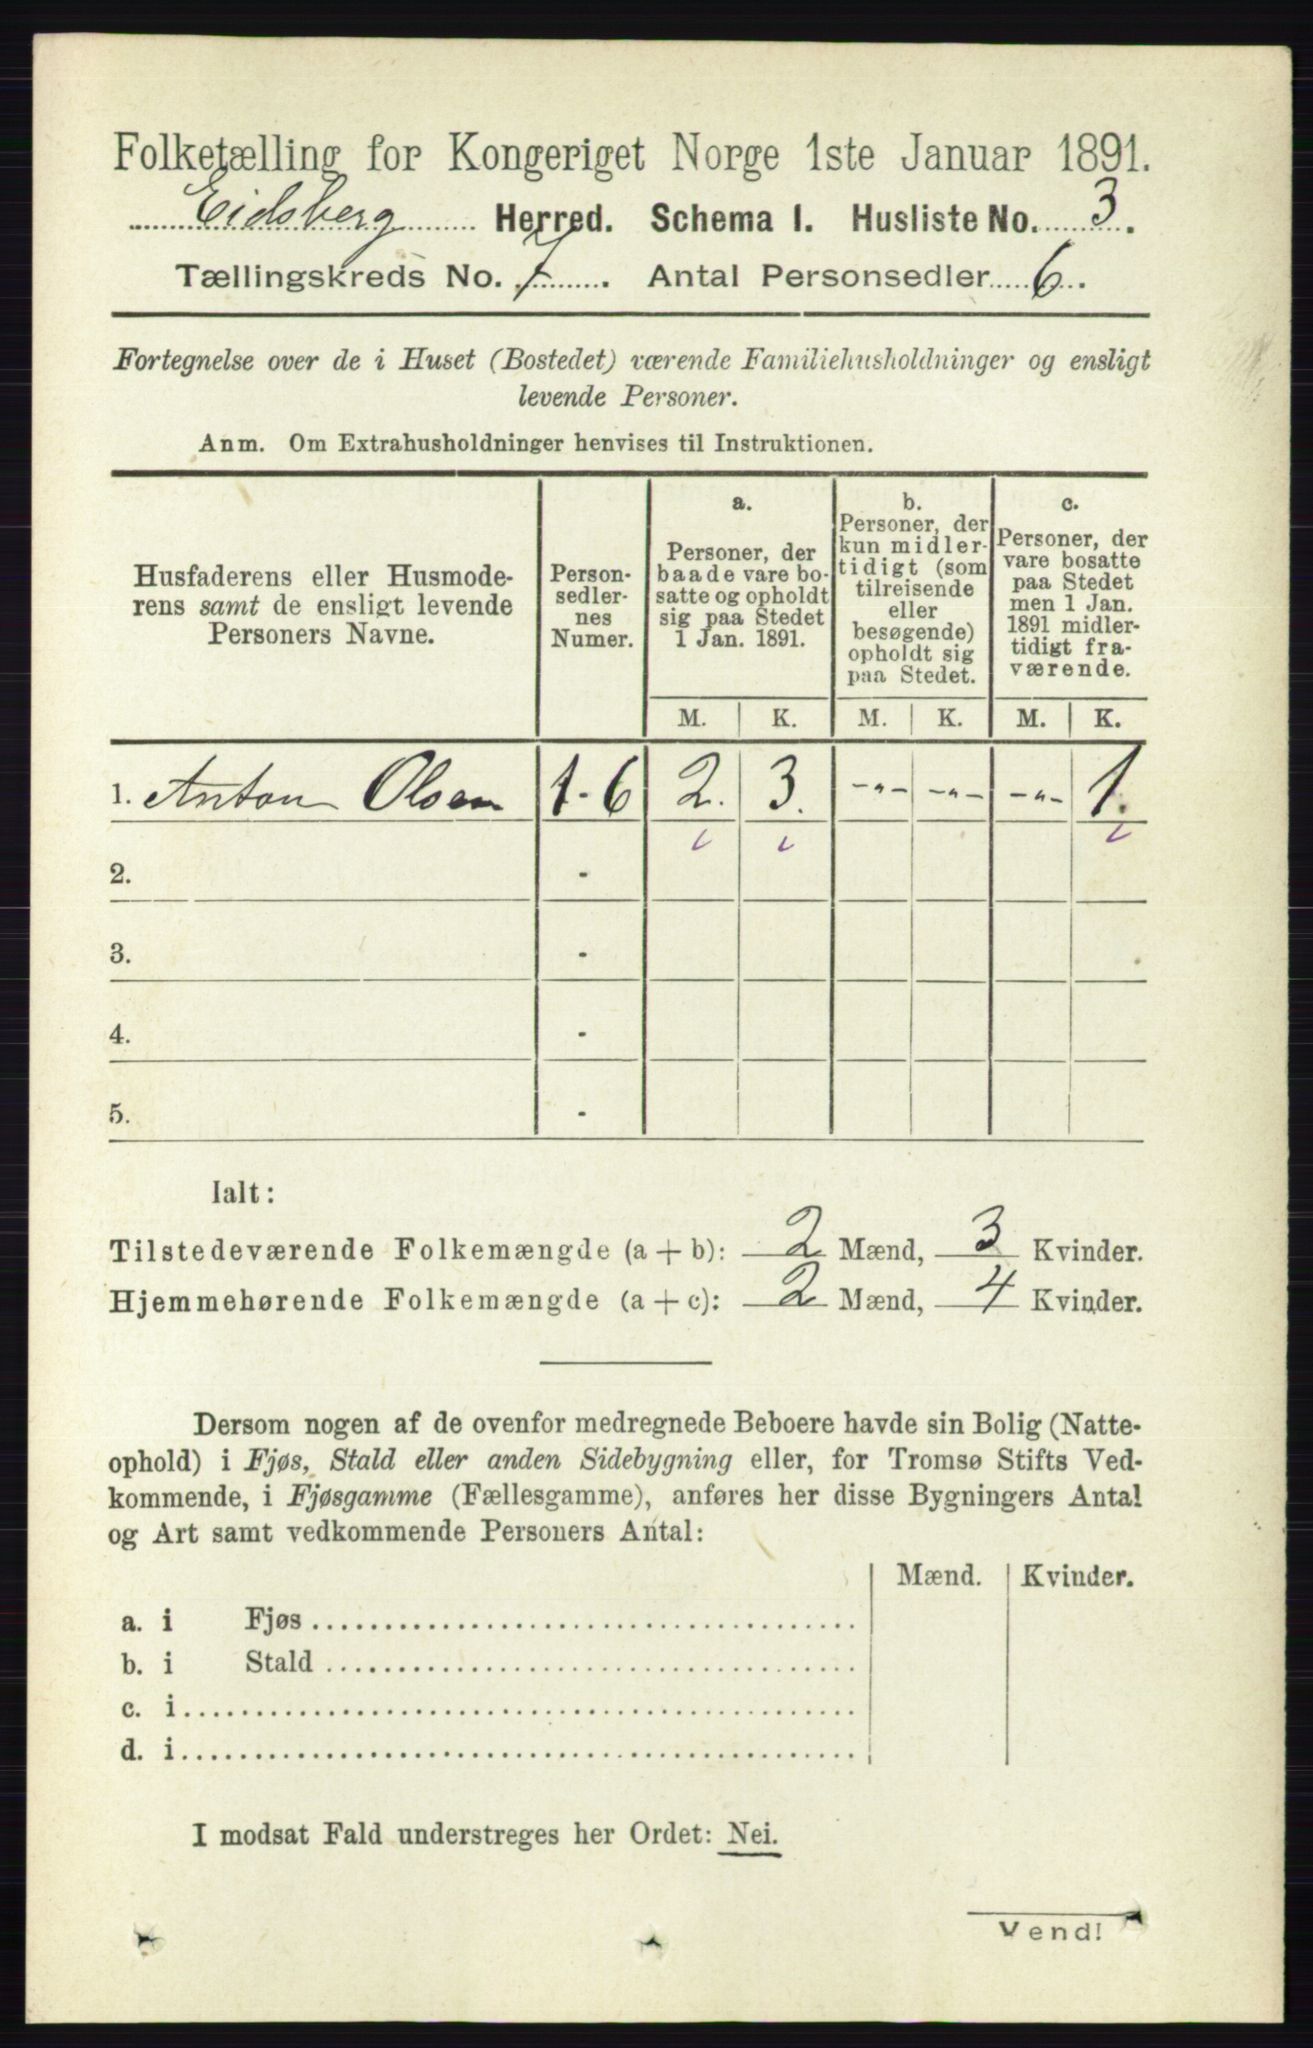 Folketælling for Kongeriget Norge 1ste Januar 1891.
Eidsberg Herred. Schema I. Husliste No. 3.
Tællingskreds No. 7. Antal Personsedler 6.
Fortegnelse over de i Huset (Bostedet) værende Familiehusholdninger og ensligt
levende Personer.
Anm. Om Extrahusholdninger henvises til Instruktionen.
Husfaderens eller Husmode-
rens samt de ensligt levende
Personers Navne.
Person-
sedler-
nes
Numer.
a.
Personer, der
baade vare bo-
satte og opholdt
sig paa Stedet
1 Jan. 1891.
b.
Personer, der
kun midler-
tidigt (som
tilreisende
eller
besøgende)
opholdt sig
paa Stedet.
c.
Personer, der
vare bosatte
paa Stedet
men 1 Jan.
1891 midler-
tidigt fra-
værende.
M. K. M. K. M. K.
1. Anton Olsen 1-6 2. 3. -"- -"- -"- 1.
2. -
3. -
4. -
5. -
Ialt:
Tilstedeværende Folkemængde (a + b): 2 Mænd, 3 Kvinder.
Hjemmehørende Folkemængde (a + c): 2 Mænd, 4 Kvinder.
Dersom nogen af de ovenfor medregnede Beboere havde sin Bolig (Natte-
ophold) i Fjøs, Stald eller anden Sidebygning eller, for Tromsø Stifts Ved-
kommende, i Fjøsgamme (Fællesgamme), anføres her disse Bygningers Antal
og Art samt vedkommende Personers Antal:
Mænd. Kvinder.
a. i Fjøs
b. i Stald
c. i
d. i
I modsat Fald understreges her Ordet: Nei.
Vend!